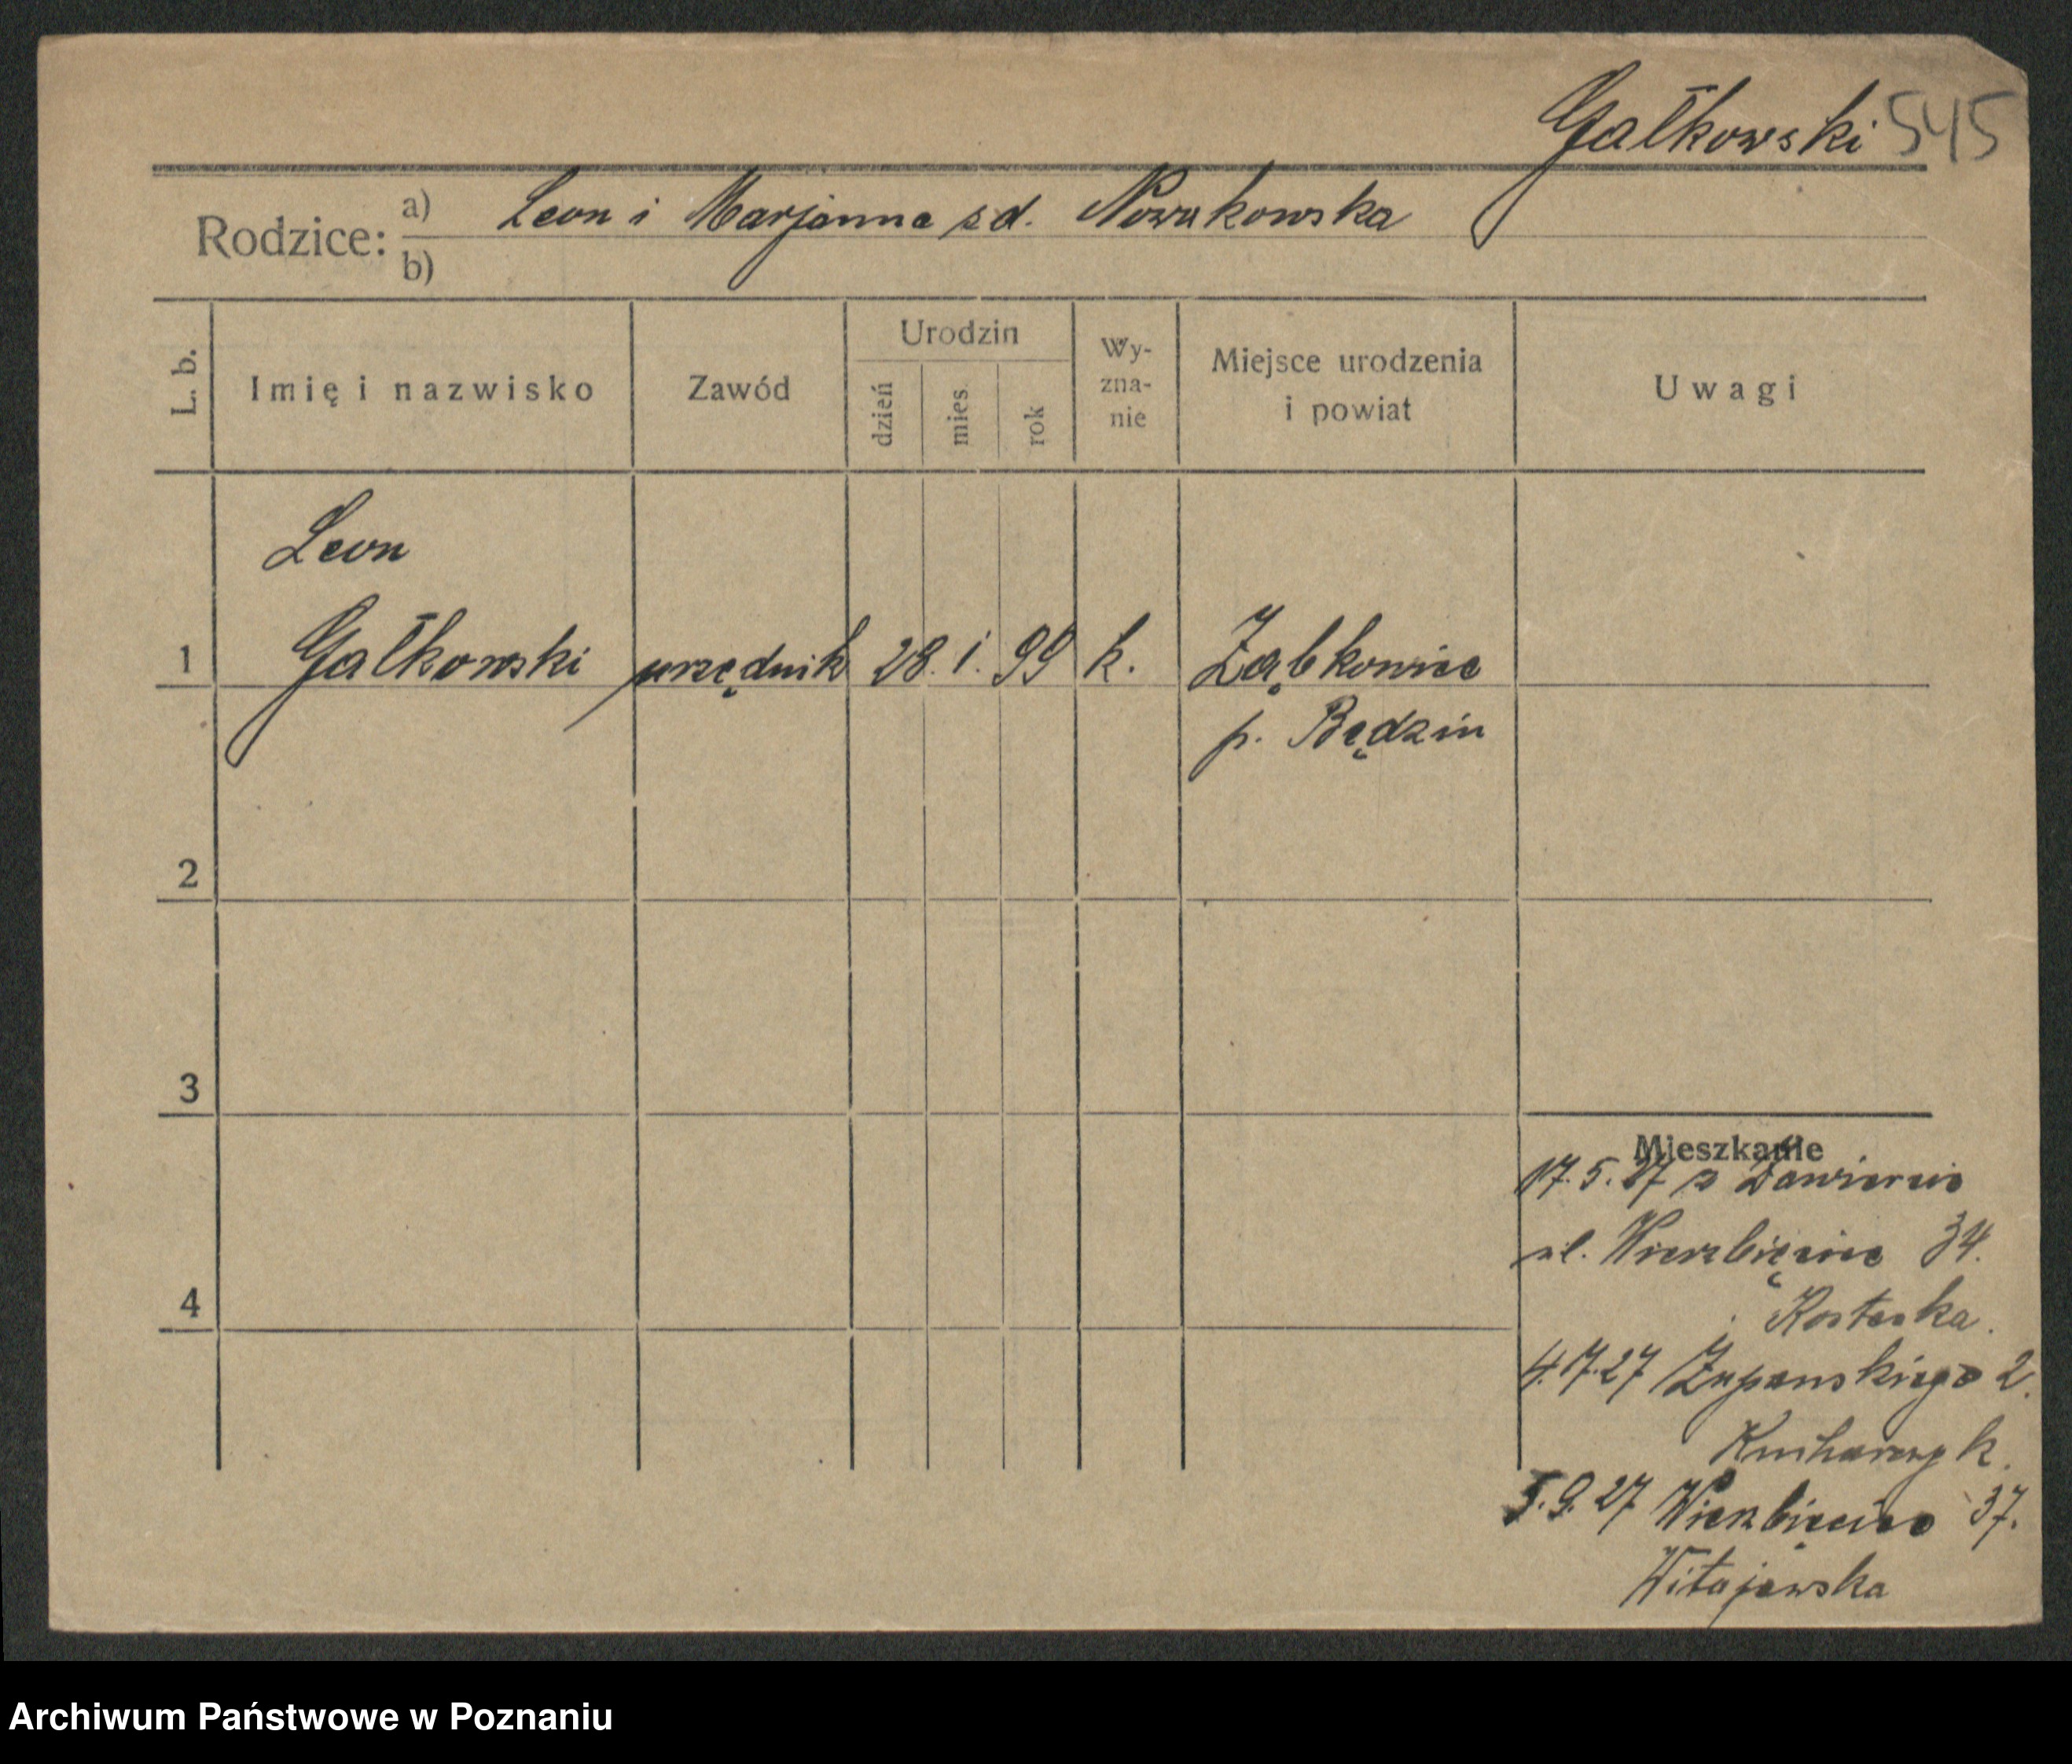 Gałkowski 545
Rodzice: a) Leon i Marjanna z d. Nowakowska
b)
L. b. Imię i nazwisko Zawód Urodzin dzień mies. rok Wy-zna-nie Miejsce urodzenia i powiat Uwagi
Leon
1 Gałkowski urzędnik 28. 1. 99 k. Ząbkowice
p. Będzin
2
3
Mieszkanie
17. 5. 27 z Zawiercia
ul. Wierzbięcice 34.
4
4.7.27 Żupańskiego 2.
Kucharczyk.
5.9.27 Wierzbięcice 37.
Witajewska
Archiwum Państwowe w Poznaniu